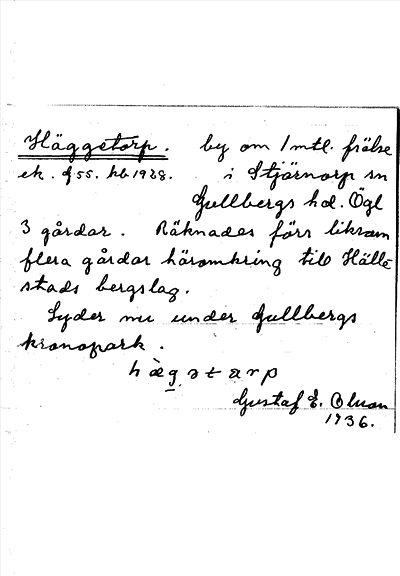 Häggetorp. by om 1 mtl. frälse
ek. f55. hb 1928. i Stjärnorp sn
Gullbergs hd. Ögl
3 gårdar. Räknades förr liksom
flera gårdar häromkring till Hälle
stads bergslag.
Lyder nu under Gullbergs
kronopark.
hæ̀gətarp
Gustaf E. Olson
1936.